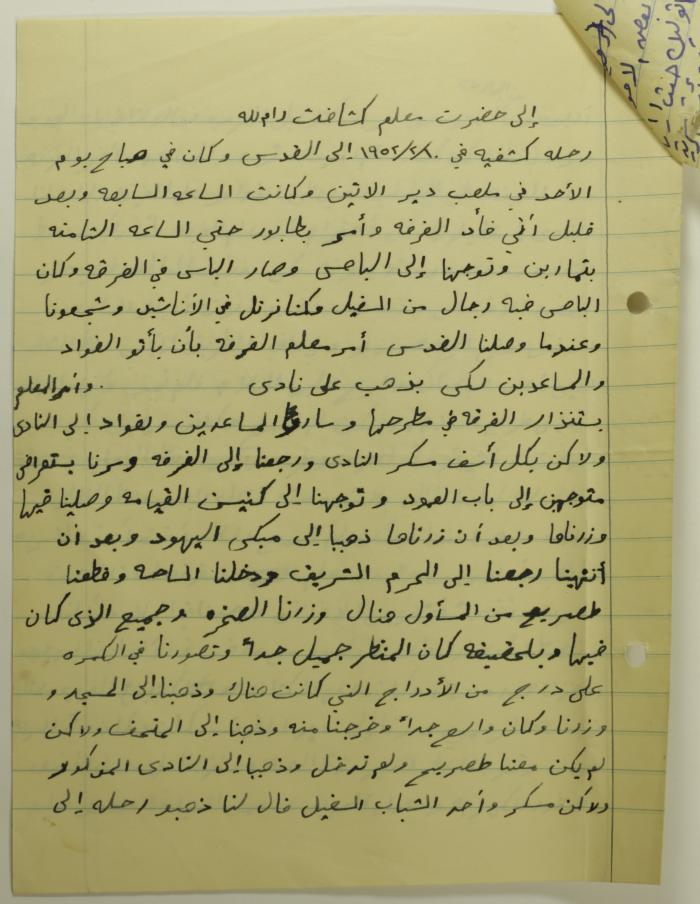 إلى حضرت معلم كشافت رام لله
رحله كشفيه في ١٩٥٢/٢/١٠ إلى القدس وكان في صباح يوم
الأحد في ملعب دير الاتين وكانت الساعه السابعه وبعد
قليل أتي قأد الفرقه وأمر بطابور حتي الساعه الثامنه
بتمارين وتوجهنا إلى الباص وصار الباس في الفرقه وكان
الباص فيه رجال من السفيل وكنا نرتل في الأناشيد وشجعونا
وعندما وصلنا القدس أمر معلم الفرقه بأن يأتو القواد
والمساعدين لكي يذهب على نادى . وأمر المعلم
بستنذار الفرقه في مطرحها وسارو المساعدين ولقواد إلى النادى
ولاكن بكل أسف مسكر النادى ورجعنا إلى الفرقه وسرنا بستعراض
متوجهين إلى باب العمود وتوجهنا إلى كنيست القيامه وصلينا فيها
وزرناها وبعد أن زرناها ذهبنا إلى مبكى اليهود وبعد أن
أنتهينا رجعنا إلى الحرم الشريف ودخلنا الساحه وقطعنا
طصريح من المسأول هناك وزرنا الصخره وجميع الذى كان
فيها وبلحقيقه كان المنظر جميل جداً وتصورنا في الكمره
على درج من الأدراج التي كانت هناك وذهبنا إلى المسجد و
وزرنا وكان واسع جداً وخرجنا منه وذهبنا إلى المتحف ولاكن
لم يكن معنا طصريح ولم ندخل وذهبنا إلى النادى المذكور
ولاكن مسكر وأحد الشباب السفيل قال لنا ذهبو رحله إلى